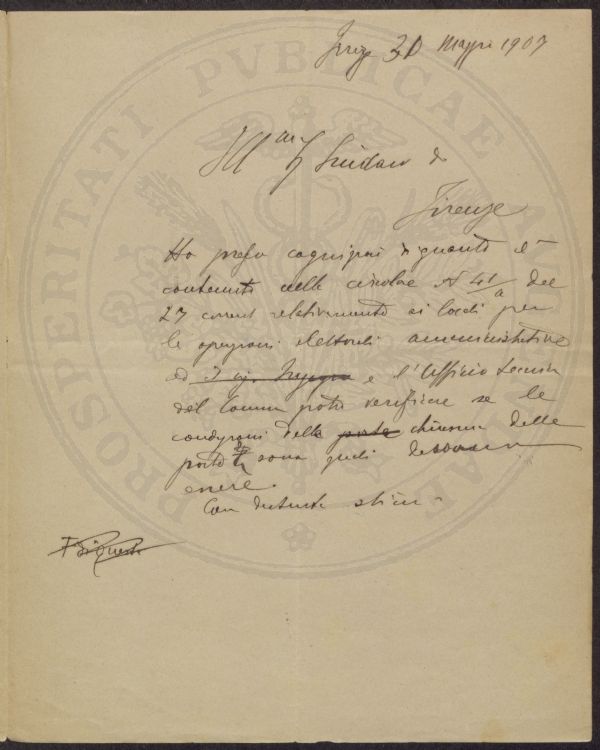 30 Maggio 1907
Ill.mo Sindaco di
Firenze
Ho preso cognizione di quanto è
contenuto nella circolare N 41/a del
27 corrent relativamente ai locali per
le operazioni elettorali amministrative
ed e l'Ufficio
del Comune potrà verificare se le
condizioni della porta chiusura delle
porte sono quali
essere.
Con distinta stima
PROSPERITATI PUBLICAE